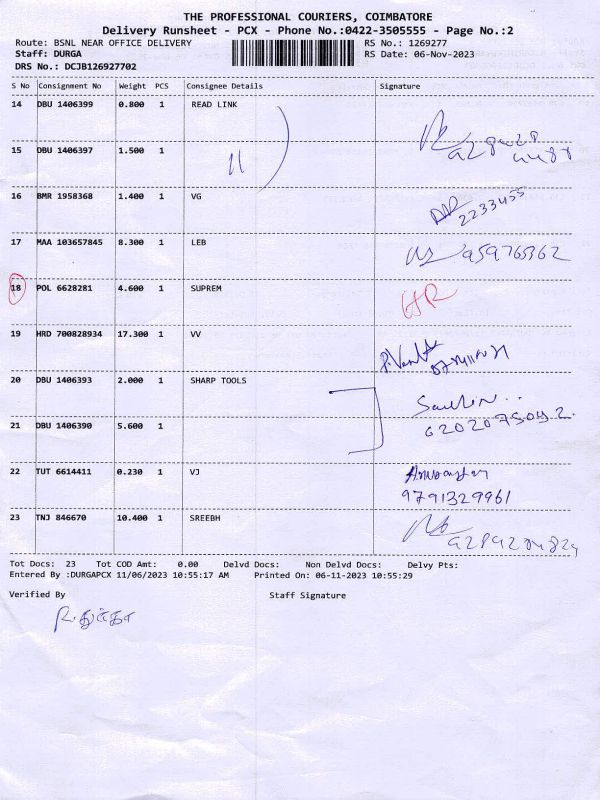 THE PROFESSIONAL COURIERS, COIMBATORE
Delivery Runsheet - PCX - Phone No.:0422-3505555 - Page No.:2
Route: BSNL NEAR OFFICE DELIVERY RS No.: 1269277
Staff: DURGA RS Date: 06-Nov-2023
DRS No.: DCJB126927702
S No Consignment No Weight PCS Consignee Details Signature
14 DBU 1406399 0.800 1 READ LINK
15 DBU 1406397 1.500 1 11
16 BMR 1958368 1.400 1 VG
2233455
17 MAA 103657845 8.300 1 LEB
18 POL 6628281 4.600 1 SUPREM HR
19 HRD 700828934 17.300 1 VV
20 DBU 1406393 2.000 1 SHARP TOOLS
21 DBU 1406390 5.600 1
22 TUT 6614411 0.230 1 VJ
9791329961
23 TNJ 846670 10.400 1 SREEBH
Tot Docs: 23 Tot COD Amt: 0.00 Delvd Docs: Non Delvd Docs: Delvy Pts:
Entered By :DURGAPCX 11/06/2023 10:55:17 AM Printed On: 06-11-2023 10:55:29
Verified By Staff Signature